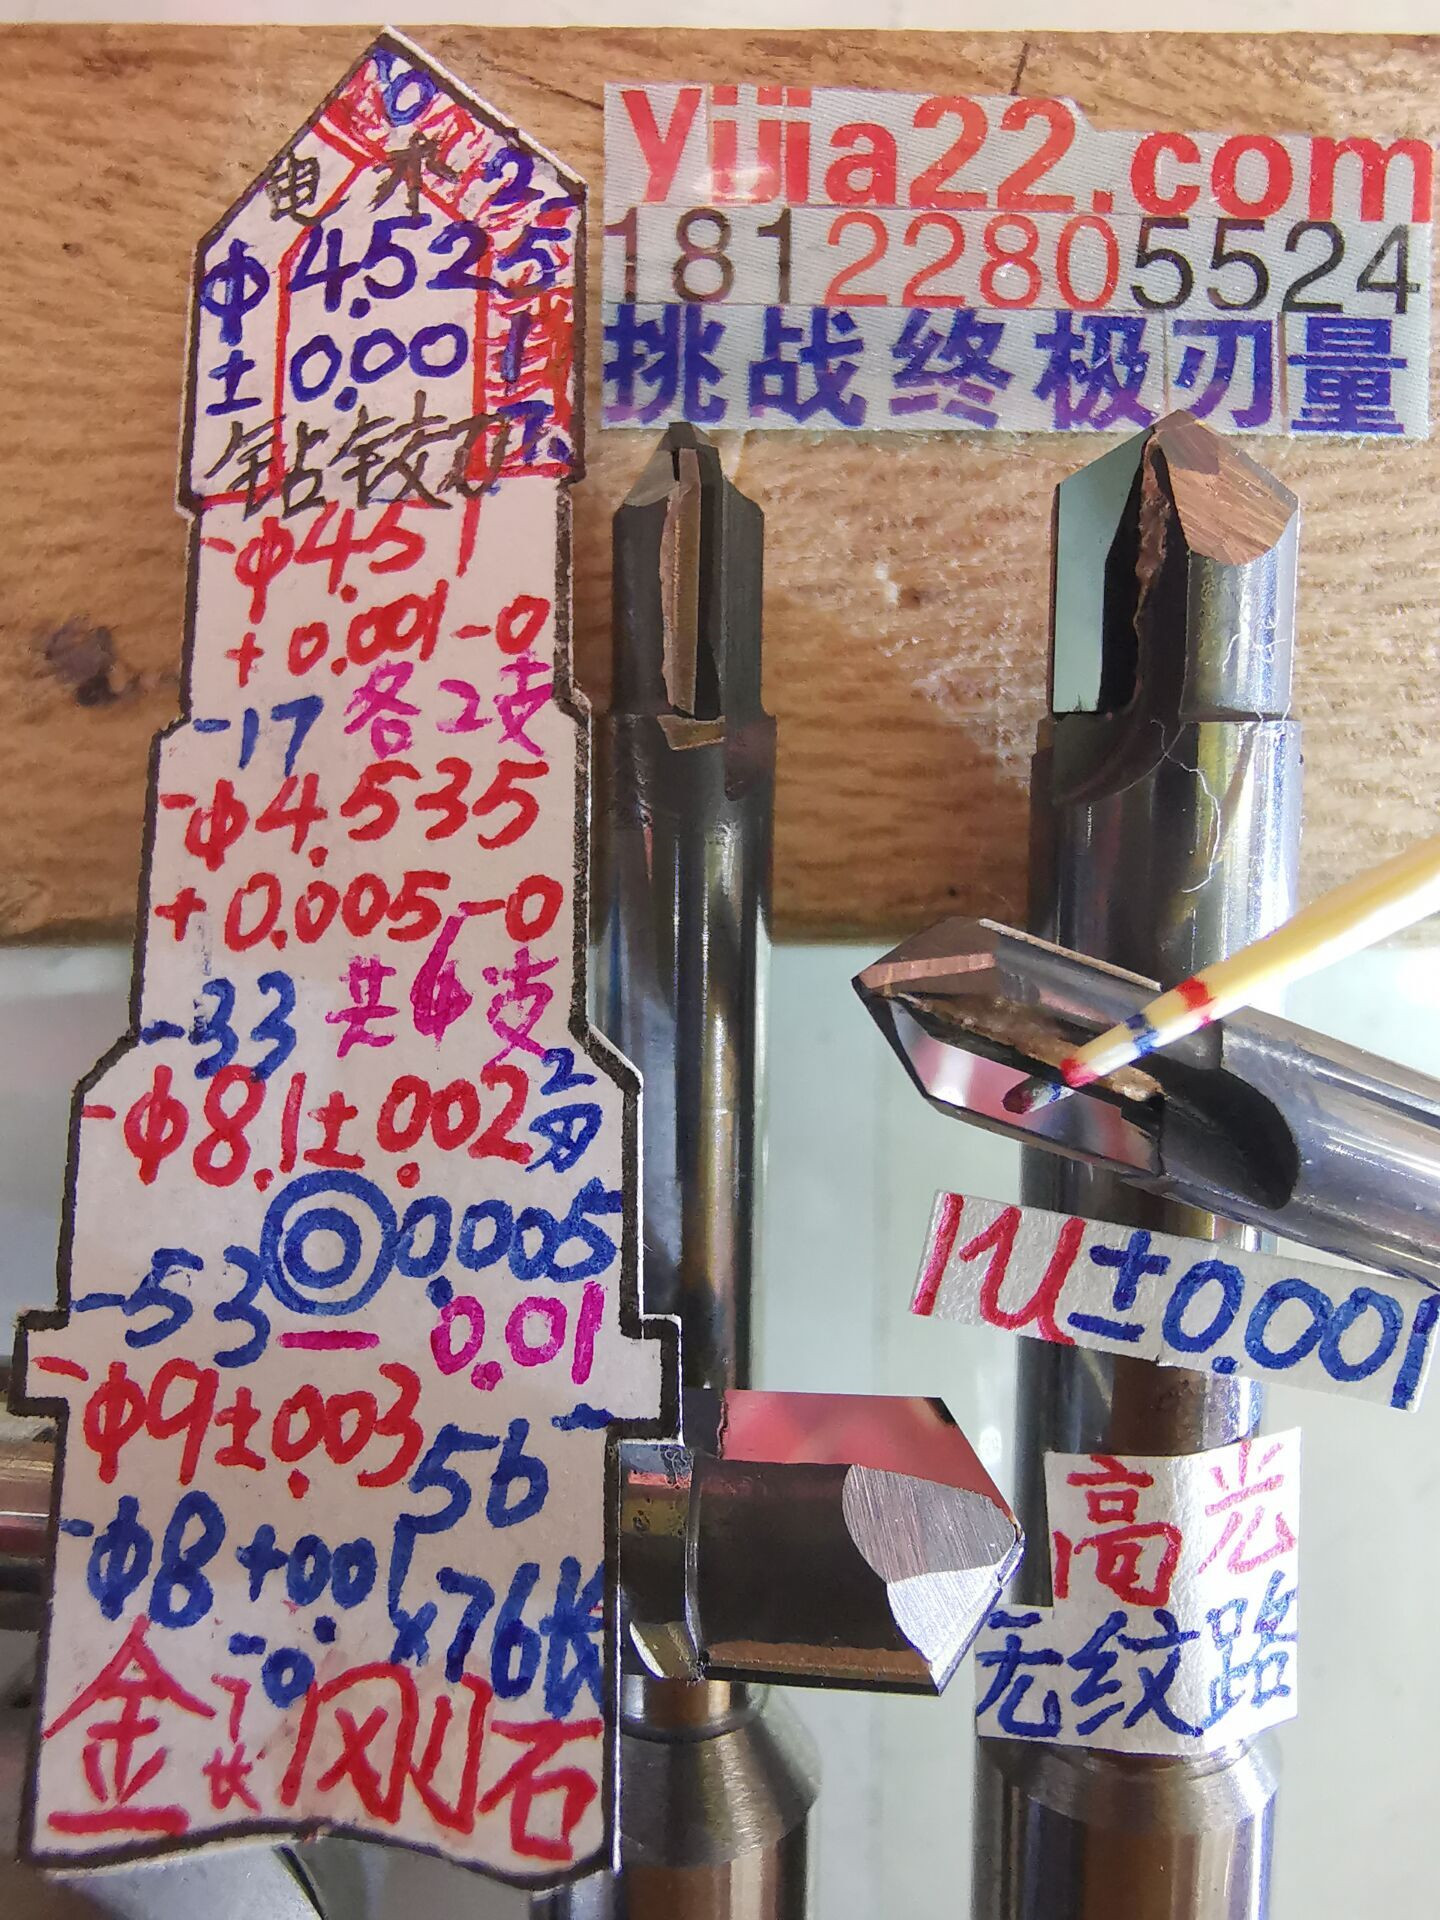 Yijia22.com
18122805524
挑战终极刃量
0
电木
2.5
φ4.525
±0.001
钻铰刀
-φ4.51
+0.001-0
-17 各2支
-φ4.535
+0.005-0
-33 共6支
-φ8.1±.002 2刃
◎0.005
-53 — 0.01
-φ9±.003
56-
-φ8+.001
-0
×76长
金刚石
长
1u±0.001
高光
无纹路